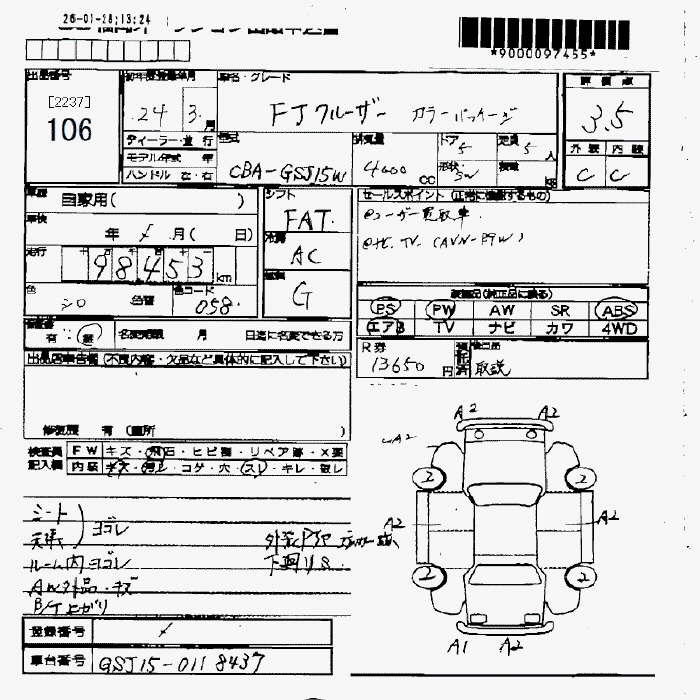 26-01-28;13:24
*9000097455*
出品番号
[2237]
106
初年度登録年月
24 3 月
ディーラー・並行
モデル年式 年
ハンドル 左・右
車名・グレード
FJクルーザー カラーパッケージ
型式
CBA-GSJ15W
排気量
4000 cc
ドア
5
形状
SW
定員
5 人
積載
KG
評価点
3.5
外装 内装
C C
車歴 自家用( )
車検 年 月( 日)
走行
98453 km
色 シロ 色替
色コード 058
シフト
FAT
冷房
AC
燃料
G
セールスポイント (正常に機能するもの)
ユーザー買取車.
ナビ, TV. (AVN-P9W)
装備品(純正品に限る)
PS PW AW SR ABS
エアB TV ナビ カワ 4WD
有・無
名変期限 月 日迄に名変できる方
R券
13650 円
預託済
取説
出品店申告欄 (不良内容・欠品など具体的に記入して下さい)
修復歴 有 (箇所 )
検査員記入欄
FW キズ・飛石・ヒビ割・リペア跡・X要
内装 キズ・汚レ・コゲ・穴・スレ・キレ・破レ
シート
天張
ヨゴレ
ルーム内ヨゴレ
AW外品・キズ
B/T上がり
下廻りS.
A2 A2
A2
2 2
A2 A2
2 2
A1 A2
登録番号
車台番号 GSJ15-0118437